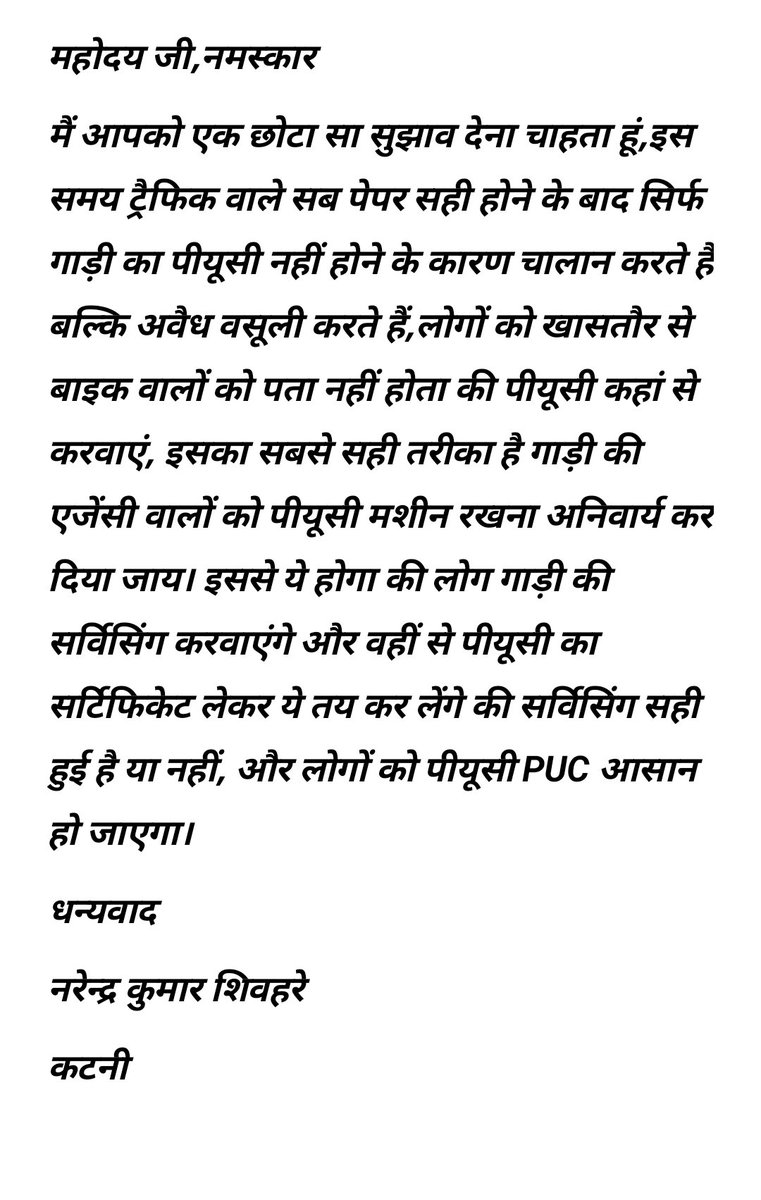 महोदय जी,नमस्कार
मैं आपको एक छोटा सा सुझाव देना चाहता हूं,इस
समय ट्रैफिक वाले सब पेपर सही होने के बाद सिर्फ
गाड़ी का पीयूसी नहीं होने के कारण चालान करते है
बल्कि अवैध वसूली करते हैं,लोगों को खासतौर से
बाइक वालों को पता नहीं होता की पीयूसी कहां से
करवाएं, इसका सबसे सही तरीका है गाड़ी की
एजेंसी वालों को पीयूसी मशीन रखना अनिवार्य कर
दिया जाय। इससे ये होगा की लोग गाड़ी की
सर्विसिंग करवाएंगे और वहीं से पीयूसी का
सर्टिफिकेट लेकर ये तय कर लेंगे की सर्विसिंग सही
हुई है या नहीं, और लोगों को पीयूसी PUC आसान
हो जाएगा।
धन्यवाद
नरेन्द्र कुमार शिवहरे
कटनी